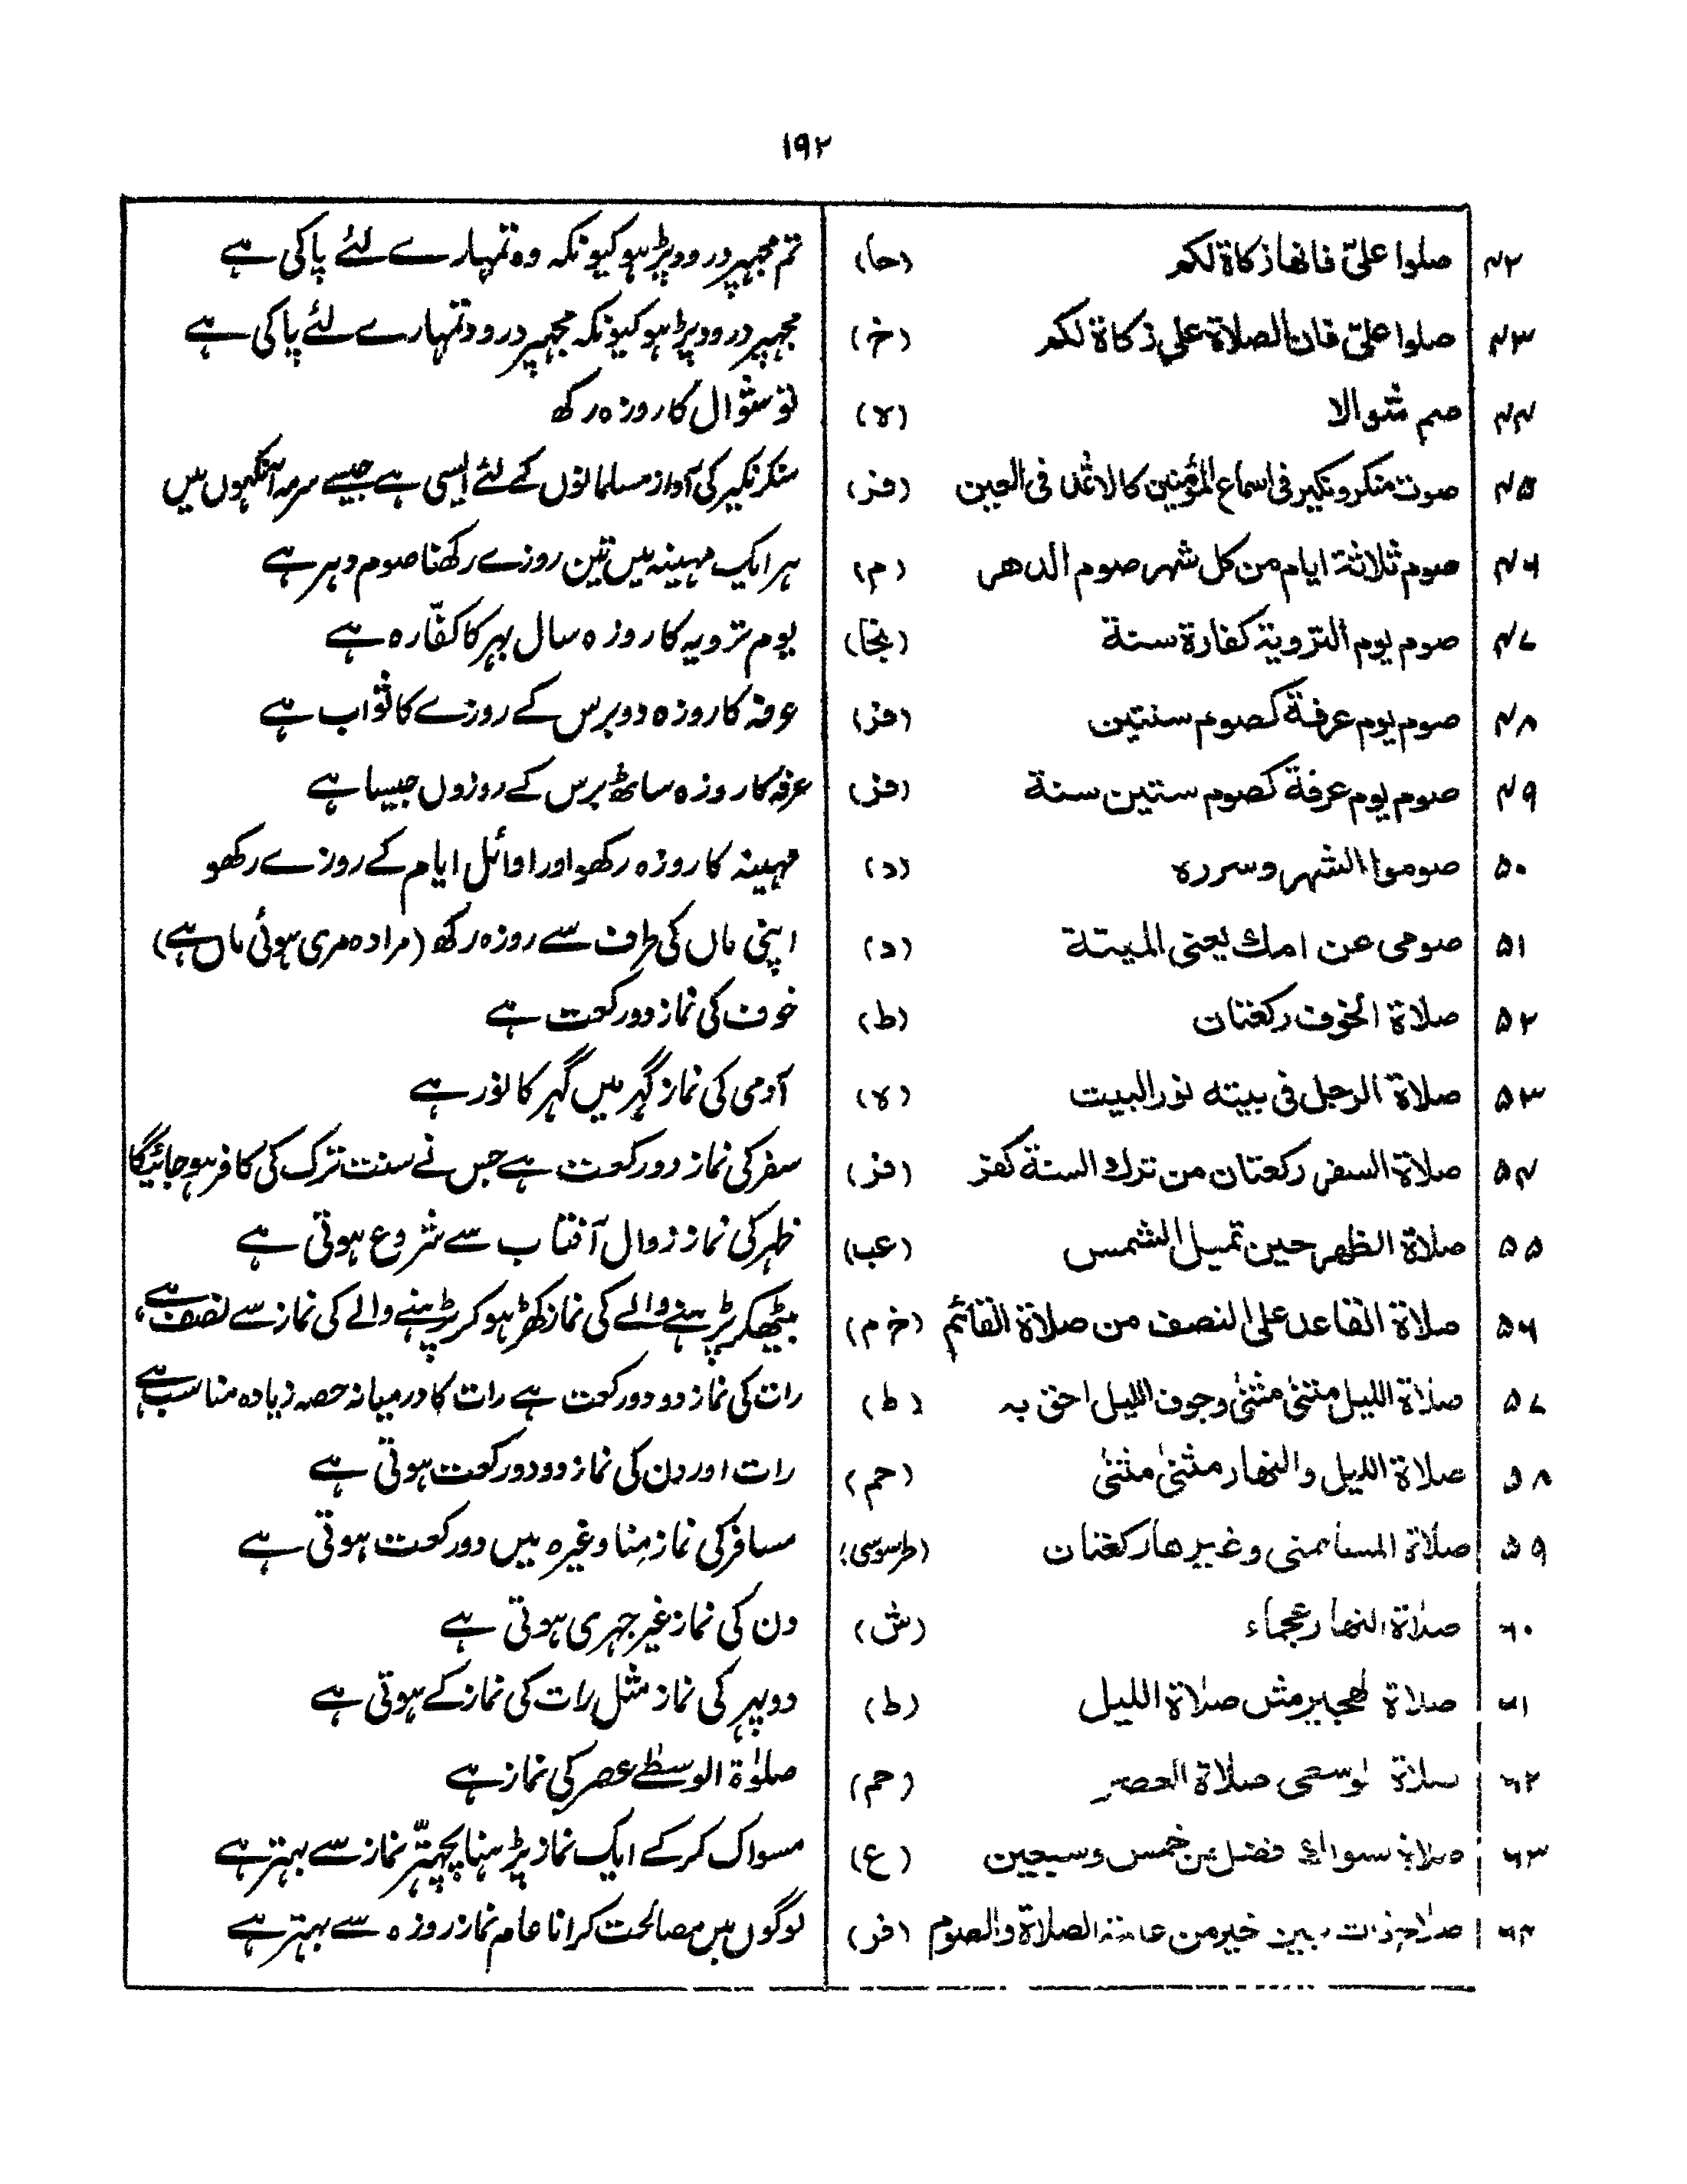 ۱۹۲
۴۲ صلوا علیّ فانها زكاة لكم (حا) تم مجہپر درود پڑہو کیونکہ وہ تمہارے لئے پاکی ہے
۴۳ صلوا علیّ فان الصلاة علی زكاة لكم (خ) مجہپر درود پڑہو کیونکہ مجہپر درود تمہارے لئے پاکی ہے
۴۴ صم شوالا (ﻻ) تو شوال کا روزہ رکھ
۴۵ صوت منكر ونكير فی اسماع المؤمنين كالاثمد فی العين (فر) منکر نکیر کی آواز مسلمانوں کے لئے ایسی ہے جیسے سرمہ آنکہوں میں
۴۶ صوم ثلاثة ایام من كل شهر صوم الدهر (م) ہر ایک مہینہ میں تین روزے رکھنا صوم دہر ہے
۴۷ صوم يوم التروية كفارة سنة (نجا) یوم ترویہ کا روزہ سال بہر کا کفّارہ ہے
۴۸ صوم يوم عرفة كصوم سنتين (فر) عرفہ کا روزہ دو برس کے روزے کا ثواب ہے
۴۹ صوم يوم عرفة كصوم ستين سنة (فر) عرفہ کا روزہ ساٹھ برس کے روزوں جیسا ہے
۵۰ صوموا الشهر وسرره (د) مہینہ کا روزہ رکھو اور اوائل ایام کے روزے رکھو
۵۱ صومی عن امك يعنی الميتة (د) اپنی ماں کی طرف سے روزہ رکھ (مراد مری ہوئی ماں ہے)
۵۲ صلاة الخوف ركعتان (ط) خوف کی نماز دو رکعت ہے
۵۳ صلاة الرجل فی بيته نور البيت (ﻻ) آدمی کی نماز گہر میں گہر کا نور ہے
۵۴ صلاة السفر ركعتان من ترك السنة كفر (فر) سفر کی نماز دو رکعت ہے جس نے سنت ترک کی کافر ہو جائیگا
۵۵ صلاة الظهر حين تميل الشمس (عب) ظہر کی نماز زوال آفتاب سے شروع ہوتی ہے
۵۶ صلاة القاعد علی النصف من صلاة القائم (خ م) بیٹھکر پڑہنے والے کی نماز کھڑہو کر پڑہنے والے کی نماز سے نصف ہے،
۵۷ صلاة الليل مثنیٰ مثنیٰ وجوف الليل احق به (ط) رات کی نماز دو دو رکعت ہے رات کا درمیانہ حصہ زیادہ مناسب ہے
۵۸ صلاة الليل والنهار مثنیٰ مثنیٰ (حم) رات اور دن کی نماز دو دو رکعت ہوتی ہے
۵۹ صلاة بمنی وغيرها ركعتان (طرسوسی) مسافر کی نماز مِنا وغیرہ میں دو رکعت ہوتی ہے
۶۰ صلاة النهار عجماء (ش) دن کی نماز غیر جہری ہوتی ہے
۶۱ صلاة صلاة الليل (ط) دوپہر کی نماز مثل رات کی نماز کے ہوتی ہے
۶۲ صلاة العصر (حم) صلوٰة الوسطے عصر کی نماز ہے
۶۳ خمس وسبعين (ع) مسواک کر کے ایک نماز پڑہنا پچہتّر نماز سے بہتر ہے
۶۴ خير من عامة الصلاة والصوم (فر) لوگوں میں مصالحت کرانا عام نماز روزہ سے بہتر ہے